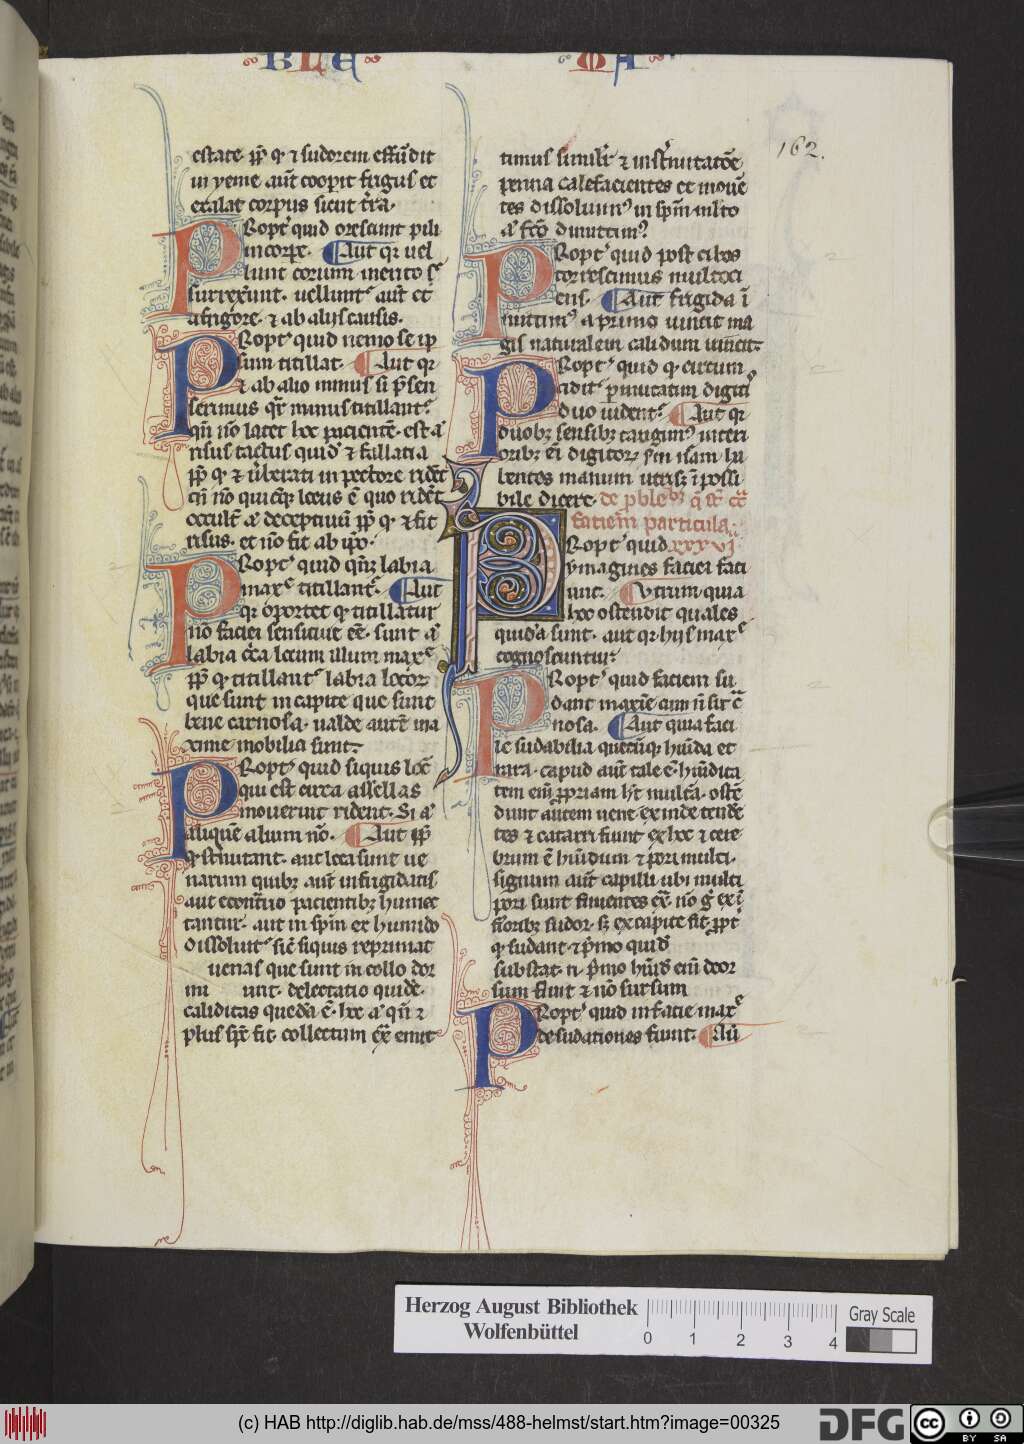 BLE MA
162.
estate. pp̄ q̄ ⁊ sudorem effūdit
in yeme aut̄ cooꝑit frigus et
exalat corpus sicut t̄ra.
Propt᷒ quid orescunt pili
in corpe. Aut qr uel
lunt eorum merito
surrexerunt. uellunt᷒ aut̄ et
a frigore. ⁊ ab alijs causis.
Propt᷒ quid nemo se ip̄
sum titillat. Aut qr
⁊ ab alio minus si p̄sen
serimus qr̄ minus titillant᷒.
qm̄ nō latet hec pacientē. est aͥ
risus tactus quid᷒ ⁊ fallacia
pp̄ q̄ ⁊ ūberati in pectore ridēt
occult᷒ aͥ deceptiuū pp̄ q̄ ⁊ fit
risus. et nō fit ab ip̄o.
Propt᷒ quid labia
max᷒ titillant᷒. Aut
qr oportet q̄ titillatur
nō faciei sensitiue eē. sunt aͥ
labia cc̄a locum illum max᷒
pp̄ q̄ titillant᷒ labia locor᷒
que sunt in capite que sunt
bene carnosa. ualde autē ma
xime mobilia sunt.
Propt᷒ quid siquis loc̄
qui est circa assellas
mouerint rident. Si aͥ
aliquē alium nō. Aut pp̄
q̄ st̄nutant. aut loca sunt ue
narum quibꝫ aut̄ infrigidatis
aut econtͥrio pacientibꝫ humec
tantur. aut in spm̄ ex humido
dissoluit᷒ sic̄ siquis reprimat
uenas que sunt in collo dor
mi unt. delectatio quidē.
caliditas quedā ē. hec aͥ qn̄ ⁊
plus spc̄ fit. collectum ex̄ emit
timus similr̄ ⁊ in st̄nutatōē
penna calefacientes et mouē
tes dissoluim᷒ in spm̄ mlto
aͥ fc̄o dimittim᷒
Propt᷒ quid post cibos
torrescimus multoci
ens. Aut frigida ī
mittim᷒ a primo uincit ma
gis naturalem calidum uincit.
Propt᷒ quid q̄ circum
cidit᷒ pmutatim digit᷒
duo uident᷒. Aut qr
duobꝫ sensibꝫ tangim᷒ interi
oribꝫ eī digitoꝝ
bentes manum utrisꝗ īpossi
bile dicere. de pble᷒bꝫ q̄ st̄ cc̄a
faciem particula
Propt᷒ quid xxxvj
ymagines faciei faci
unt. Utrum quia
hec ostendit quales
quidā sunt. aut qr hijs max᷒
cognoscuntur.
Propt᷒ quid faciem su
dant maxime cum nō sit c̄a
nosa. Aut quia faci
le sudabilia quecūqꝫ hūida et
rara. capud aut̄ tale ē. hūidita
tem em̄ ppriam hꝫ multā. ostē
dunt autem uene ex inde tende
tes ⁊ catarri fiunt ex hoc ⁊ cere
brum ē hūidum ⁊ pori multi.
signum aut̄ capilli ubi multi
pori sunt finientes ex̄. nō gͥ ex ī
fioribꝫ sudor. sꝫ ex capite fit. ppt᷒
q̄ sudant. ⁊ p̄mo quid᷒
substat. n̄ p̄mo hūid᷒ em̄ deor
sum fluit ⁊ nō sursum
Propt᷒ quid in facie max᷒
desudationes fiunt. Aū
Herzog August Bibliothek
Wolfenbüttel
0 1 2 3 4
Gray Scale
(c) HAB http://diglib.hab.de/mss/488-helmst/start.htm?image=00325
DFG
cc BY SA